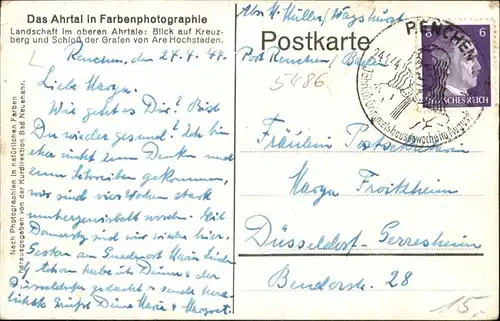 Das Ahrtal in Farbenphotographie
Landschaft im oberen Ahrtale: Blick auf Kreuz-
berg und Schloß der Grafen von Are Hochstaden.
Nach Photographien in natürlichen Farben
herausgegeben von der Kurdirektion Bad Neuenahr.
Renchen, den 24.4.44
Liebe Margu.
Wie geht es Dir? Bist
Du wieder gesund? Ich bin
eher nicht zum Denken und
zum Schreiben gekommen,
wir sind vier Wochen stark
umhergewirbelt worden. Seit
Donnerstag sind wir wieder hier.
Gestern am
Düsseldorfer gedacht - sende herz-
lichste Grüße Deine Maria & Margret.
Abs. M. Müller, Wagshurst
Post Renchen, Baden
Postkarte
5486
RENCHEN
6
6
DEUTSCHES REICH
Fräulein Postsekretärin
Margu Froitzheim
Düsseldorf-Gerresheim
Benderstr. 28
15,-